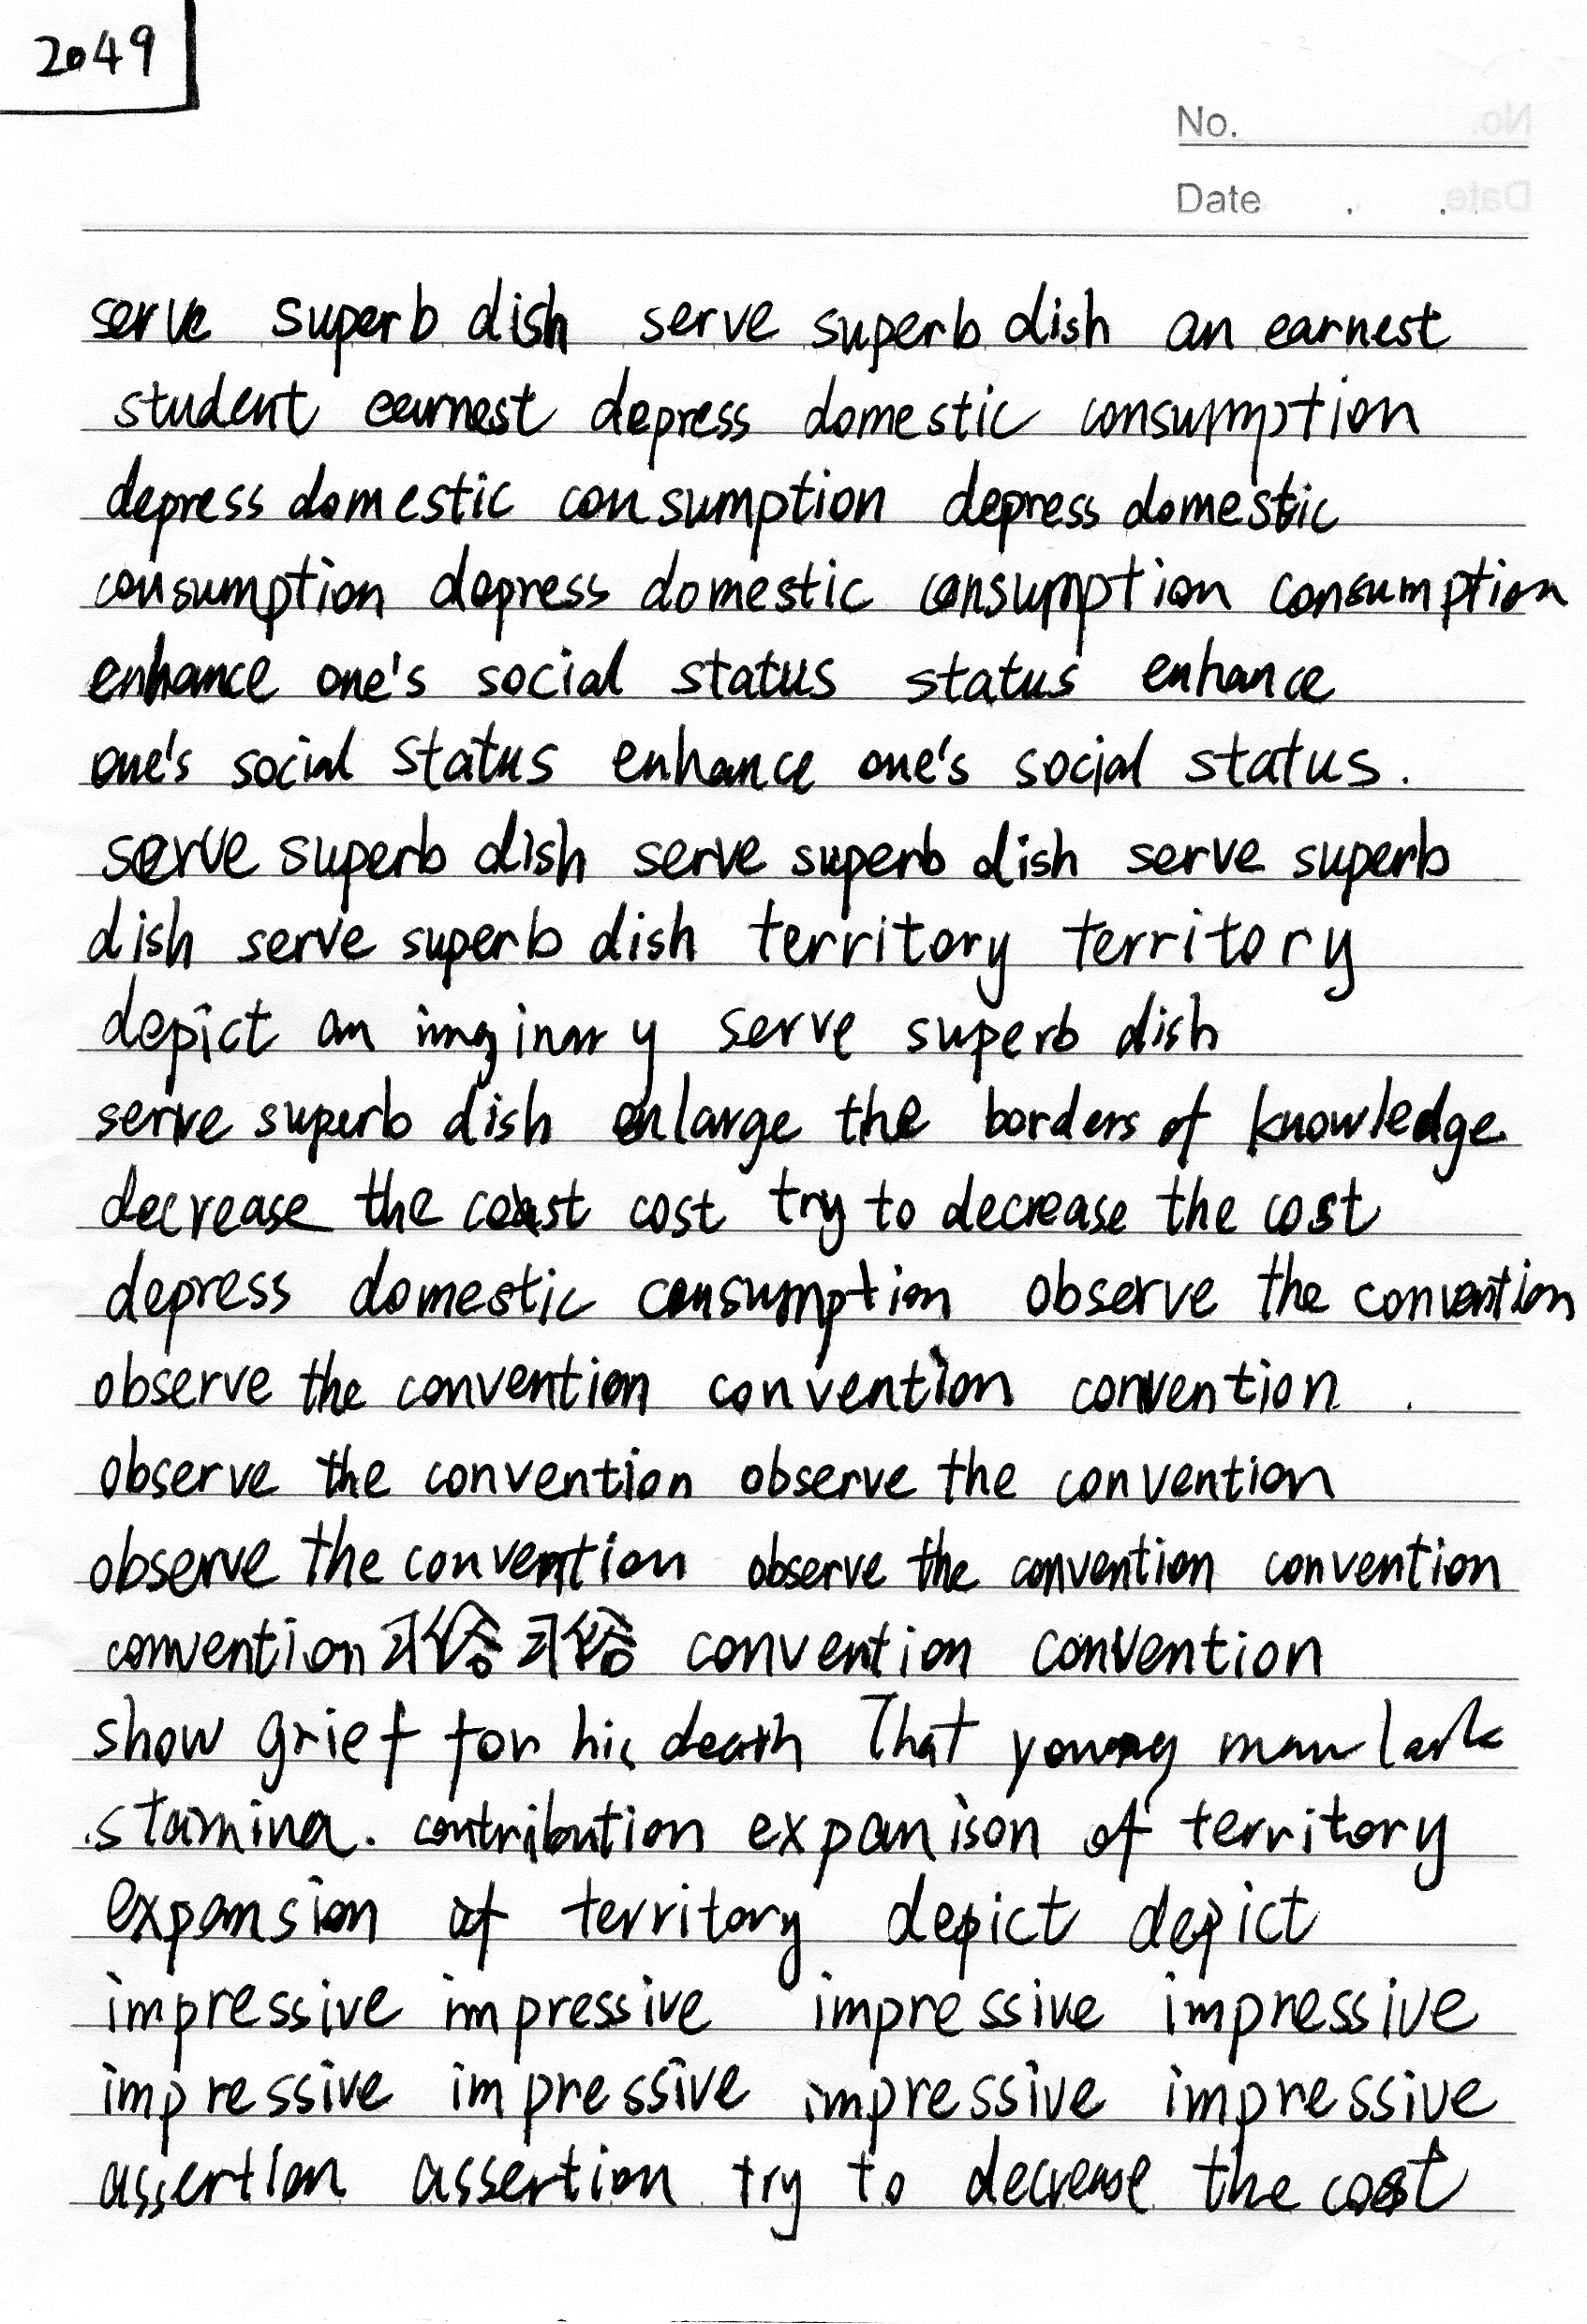 2049
No.
Date . .
serve superb dish serve superb dish an earnest
student earnest depress domestic consumption
depress domestic consumption depress domestic
consumption depress domestic consumption consumption
enhance one's social status status enhance
one's social status enhance one's social status.
serve superb dish serve superb dish serve superb
dish serve superb dish territory territory
depict an imginary serve superb dish
serve superb dish enlarge the borders of knowledge
decrease the cost try to decrease the cost
depress domestic consumption observe the convention
observe the convention convention convention .
observe the convention observe the convention
observe the convention observe the convention convention
convention 习俗 习俗 convention convention
show grief for his death That young man lack
stamina. contribution expanison of territory
expansion of territory depict depict
impressive impressive impressive impressive
impressive impressive impressive impressive
assertion assertion try to decrease the cost